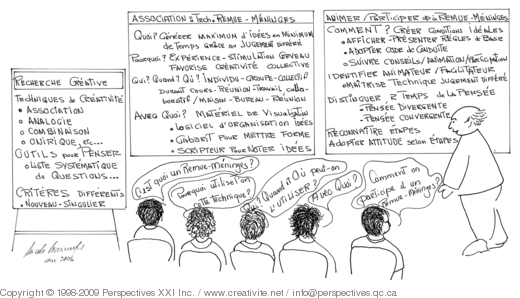 RECHERCHE CRÉATIVE
TECHNIQUES DE CRÉATIVITÉ
• ASSOCIATION
• ANALOGIE
• COMBINAISON
• ONIRIQUE, ETC...
OUTILS POUR PENSER
• LISTE SYSTÉMATIQUE
DE QUESTIONS...
CRITÈRES DIFFÉRENTS
• NOUVEAU - SINGULIER
ASSOCIATION : TECH. REMUE - MÉNINGES
QUOI? GÉNÉRER MAXIMUM D'IDÉES EN MINIMUM
DE TEMPS GRÂCE AU JUGEMENT DIFFÉRÉ
POURQUOI? EXPÉRIENCE - STIMULATION CERVEAU
FAVORISE CRÉATIVITÉ COLLECTIVE
QUI? QUAND? OÙ? INDIVIDU - GROUPE - COLLECTIF
DURANT COURS - RÉUNION - TRAVAIL COLLA-
BORATIF / MAISON - BUREAU - RÉUNION
AVEC QUOI? MATÉRIEL DE VISUALISATION
• LOGICIEL D'ORGANISATION IDÉES
• GABARIT POUR METTRE FORME
• SCRIPTEUR POUR NOTER IDÉES
ANIMER / PARTICIPER REMUE-MÉNINGES
COMMENT? CRÉER CONDITIONS IDÉALES
• AFFICHER - PRÉSENTER RÈGLES DE BASE
• ADOPTER CODE DE CONDUITE
• SUIVRE CONSEILS / ANIMATION / PARTICIPATION
IDENTIFIER ANIMATEUR / FACILITATEUR
• MAÎTRISE TECHNIQUE JUGEMENT DIFFÉRÉ
DISTINGUER 2 TEMPS DE LA PENSÉE
- PENSÉE DIVERGENTE
- PENSÉE CONVERGENTE
RECONNAÎTRE ÉTAPES
ADOPTER ATTITUDE SELON ÉTAPES
C'est quoi un Remue-méninges?
Pourquoi utilise-t-on
cette technique?
Qui? Quand et Où peut-on
L'UTILISER?
AVEC QUOI?
Comment on
participe à un
Remue-Méninges?
Copyright © 1998-2009 Perspectives XXI Inc. / www.creativite.net / info@perspectives.qc.ca